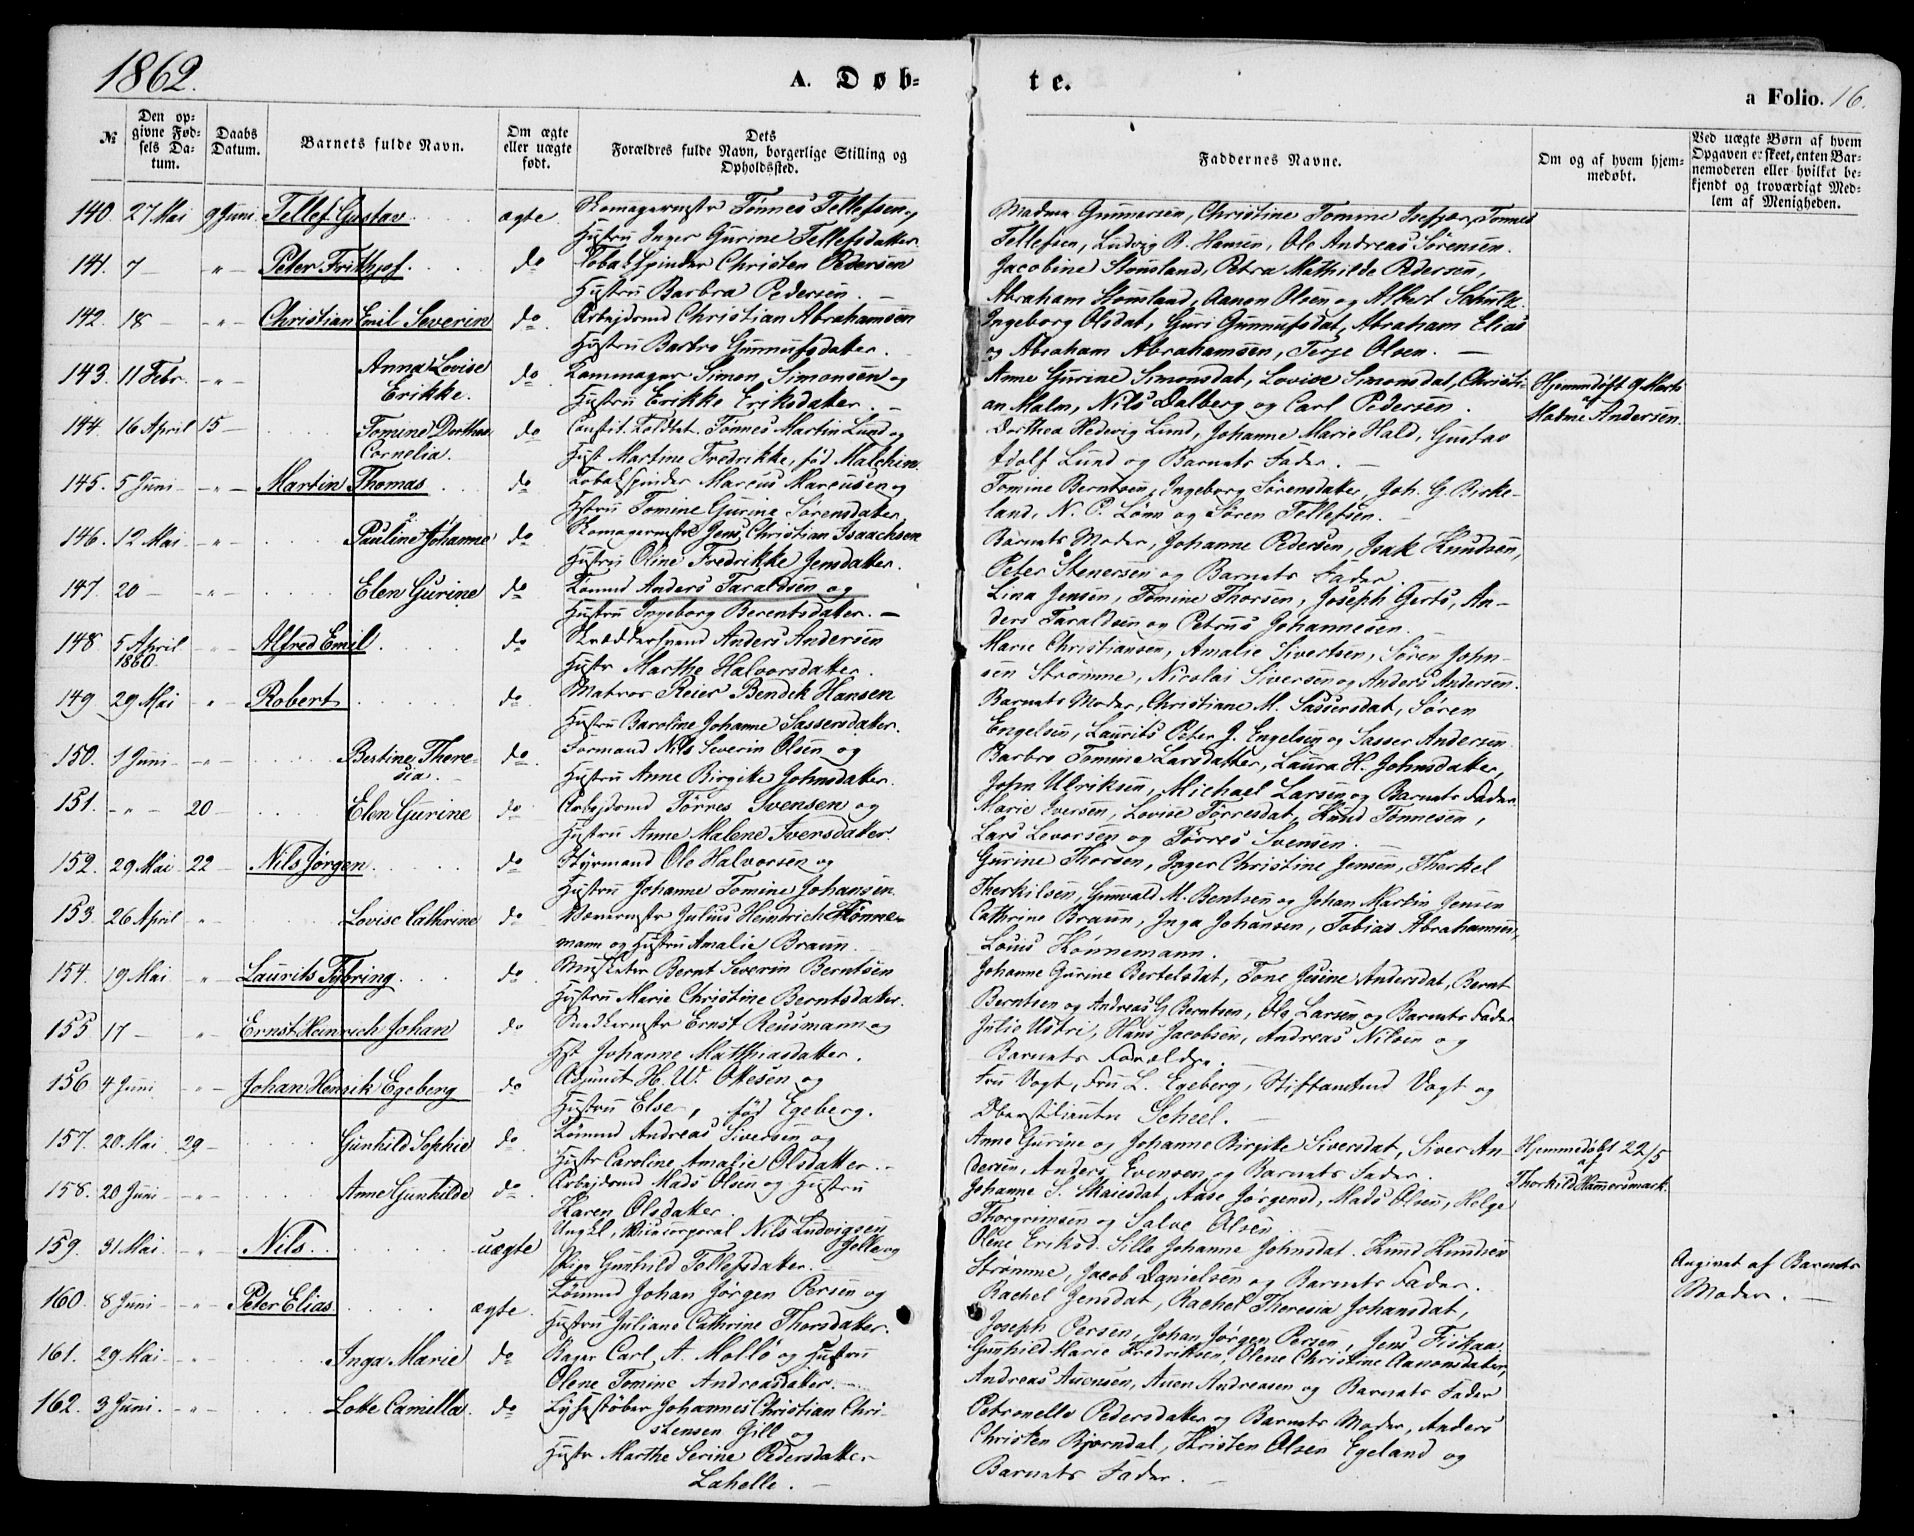 1862.
A. Døb-
te.
a Folio. 16.
№
Den op-
givne Fød-
sels Da-
tum.
Daabs
Datum.
Barnets fulde Navn.
Om ægte
eller uægte
født.
Dets
Forældres fulde Navn, borgerlige Stilling og
Opholdssted.
Faddernes Navne.
Om og af hvem hjem-
medøbt.
Ved uægte Børn af hvem
Opgaven er skeet, enten Bar-
nemoderen eller hvilket be-
kjendt og troværdigt Med-
lem af Menigheden.
140. 27 Mai 9 Juni. Tellef Gustav ægte Skomagermstr Tønnes Tellefsen og
Hustru Inger Gurine Tellefsdatter.
Madme Gunnersen, Christine Tomme Tønnes
Tellefsen, Ludvig B. Hansen, Ole Andreas Sørensen.
141. 7 — " — Peter Frithjof. do Tobakspinder Christen Pedersen
Hustru Barbra Pedersen. —
Jacobine Stousland, Petra Mathilde Pedersen,
Abraham Stousland, Aanon Olsen og Albert Schulz.
142. 18 — " — Christian Emil Severin do Arbejdsmd Christian Abrahamsen
Hustru Barbro Gunnufsdatter.
Ingeborg Olsdat, Guri Gunnufsdat, Abraham Elias
og Abraham Abrahamsen, Terje Olsen. —
143. 11 Febr. — " — Anna Lovise
Erikke. do Kammager Simon Simonsen og
Hustru Erikke Eriksdatter. —
Anne Gurine Simonsdat, Lovise Simonsdat, Christi-
an Malm, Nils Dalberg og Carl Pedersen.
Hjemmedøbt 9 Marts
af
Madme Andersen.
144. 16 April 15 — Tomine Dorthea
Cornelia. do Constit. Toldbet. Tønnes Martin Lund og
Hust Martine Fredrikke, fød Malchin.
Dorthea Hedevig Lund, Johanne Marie Hald, Gustav
Adolf Lund og Barnets Fader. —
145. 5 Juni — " — Martin Thomas do Tobakspinder Marcus Marcusen og
Hustru Tomine Gurine Sørensdatter.
Tomine Berntsen, Ingeborg Sørensdatter, Joh. G. Birke-
land, N. P. Lønn og Søren Tellefsen. —
146. 12 Mai — " — Pauline Johanne do Skomagermstr Jens Christian Isaachsen
Hustru Oline Fredrikke Jensdatter.
Barnets Moder, Johanne Pedersen, Isak Knudsen,
Peter Stenersen og Barnets Fader.
147. 20 — " — Elen Gurine do Tømmd Anders Taraldsen og
Hustru Ingeborg Berentsdatter. —
Lina Jensen, Tomine Thorsen, Joseph Gerts, An-
ders Taraldsen og Petrus Johannesen.
148. 5 April
1860. — " — Alfred Emil. do Skræddersvend Anders Andersen
Hustr Marthe Halvorsdatter.
Marie Christiansen, Amalie Sivertsen, Søren John-
sen Strømme, Nicolai Siversen og Anders Andersen.
149. 29 Mai — " — Robert do Matros Reier Bendik Hansen
Hustru Baroline Johanne Sassersdatter.
Barnets Moder, Christiane M. Sassersdat, Søren
Engelsen, Laurits Peter J. Engelsen og Sasser Andersen.
150. 1 Juni — " — Bertine There-
sia. — do Formand Nils Severin Olsen og
Hustru Anne Birgitte Johnsdatter.
Barbro Tomine Larsdatter, Laura H. Johnsdatter,
John Ulriksen, Michael Larsen og Barnets Fader.
151. — " — 20 — Elen Gurine do Arbejdsmd Tørres Svensen og
Hustru Anne Malene Iversdatter.
Marie Iversen, Lovise Torresdat, Knud Tønnesen,
Lars Levorsen og Tørres Svensen. —
152. 29 Mai 22 — Nils Jørgen. do Styrmand Ole Halvorsen og
Hustru Johanne Tomine Johansen.
Gurine Thorsen, Inger Christine Jensen, Therkel
Therkilsen, Gunvald M. Bentsen og Johan Martin Jensen
153. 26 April — " — Lovise Cathrine do Vævermstr Julius Heinrich Könne-
mann og Hustru Amalie Braun.
Cathrine Braun, Inga Johansen, Tobias Abrahamsen,
Louis Könnemann.
154. 19 Mai — " — Laurits Tybring. do Musketer Bernt Severin Berntsen
Hustru Marie Christine Berntsdatter.
Johanne Gurine Bertelsdat, Tone Jesine Andersdat, Bernt
Berntsen og Andreas G. Berntsen, Ole Larsen og Barnets Fader
155. 17 — " — Ernst Heinrich Johan do Snedkermstr Ernst Reusmann og
Hst Johanne Matthiasdatter.
Julie Ustri, Hans Jacobsen, Andreas Nilsen og
Barnets Forældre.
156 4 Juni. — " — Johan Henrik Egeberg do Adjunct H. W. Ottesen og
Hustru Else, fød Egeberg.
Fru Vogt, Fru L. Egeberg, Stiftamtmd Vogt og
Oberstlieutn Scheel. —
157. 20. Mai 29 — Gunhild Sophie do Tømmd Andreas Siversen og
Hustr Caroline Amalie Olsdatter. —
Anne Gurine og Johanne Birgitte Siversdat, Siver An-
dersen, Anders Evensen og Barnets Fader.
Hjemmedøbt 22/5
af
Thorkild Hammersmark.
158. 20 Juni — " — Anne Gunhilde do Arbejdsmd Mads Olsen og Hustru
Karen Olsdatter.
Johanne S. Aase Jørgensd, Mads Olsen, Helge
Thorgrimsen og Salve Olsen
159. 31 Mai — " — Nils uægte Ungkl, Vicecorporal Nils Ludvigsen
Jelle og
Pige Gunhild Tellefsdatter. —
Olene Eriksd. Sille Johanne Johnsdat. Knud Knudsen
Strømme, Jacob Danielsen og Barnets Fader.
Angivet af Barnets
Moder. —
160. 8 Juni — " — Peter Elias ægte. Tømmd Johan Jørgen Persen og
Hustru Juliane Cathrine Thorsdatter.
Rachel Jensdat, Rachel Theresia Johansdat,
Joseph Persen, Johan Jørgen Persen, Jens Fiskaa.
161. 29 Mai — " — Inga Marie do Bager Carl A. Mollø og Hustru
Olene Tomine Andreasdatter. —
Gunhild Marie Fredriksen, Olene Christine Aanonsdatter,
Andreas Auensen, Auen Andreasen og Barnets Fader
162. 3 Juni. — " — Lotte Camilla. do Lysestøber Johannes Christian Chri-
stensen Gill og
Hustr Marthe Serine Pedersdatter
Lahelle. —
Petronelle Pedersdatter og Barnets Moder, Anders
Christen Bjørndal, Kristen Olsen Egeland og
Barnets Fader. —